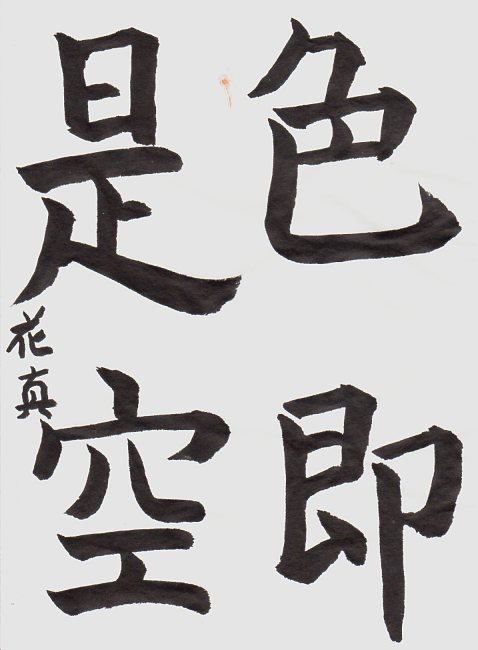 色即
是空
花真